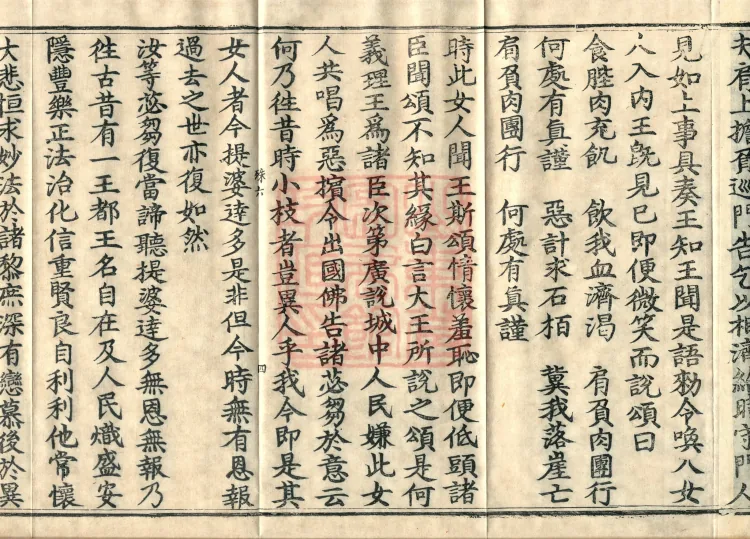 上擔負巡門告乞以相濟給時守門人
見如上事具奏王知王聞是語勑令喚入女
人入內王旣見已即便微笑而說頌曰
食䏶肉充飢　飲我血濟渴　肩負肉團行
何處有真謹　惡計求石栢　冀我落崖亡
肩負肉團行　何處有真謹
時此女人聞王斯頌情懷羞恥即便低頭諸
臣聞頌不知其緣白言大王所說之頌是何
義理王爲諸臣次第廣說城中人民嫌此女
人共唱爲惡擯令出國佛告諸苾芻於意云
何乃徃昔時小枝者豈異人乎我今即是其
六　四
女人者今提婆達多是非但今時無有恩報
過去之世亦復如然
汝等苾芻復當諦聽提婆達多無恩無報乃
徃古昔有一王都王名自在及人民熾盛安
隱豐樂正法治化信重賢良自利利他常懷
大悲恒求妙法於諸黎庶深有戀慕後於異